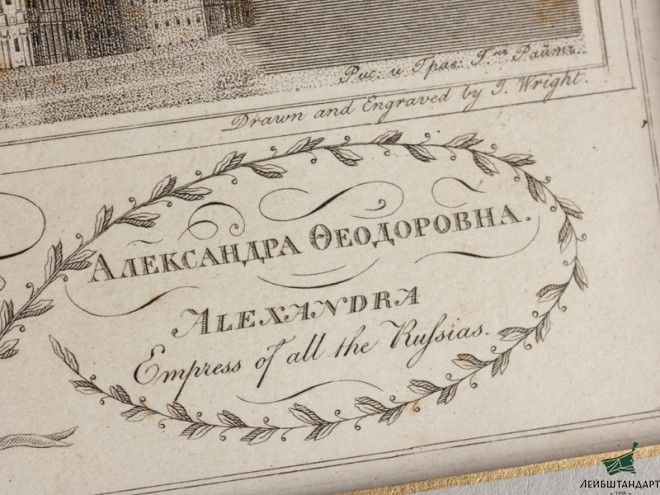 Рис. и Грав: Г.нъ Райтъ.
Drawn and Engraved by J. Wright.
АЛЕКСАНДРА ѲЕОДОРОВНА.
ALEXANDRA
Empress of all the Rufsias.
ЛЕЙБШТАНДАРТ
1998